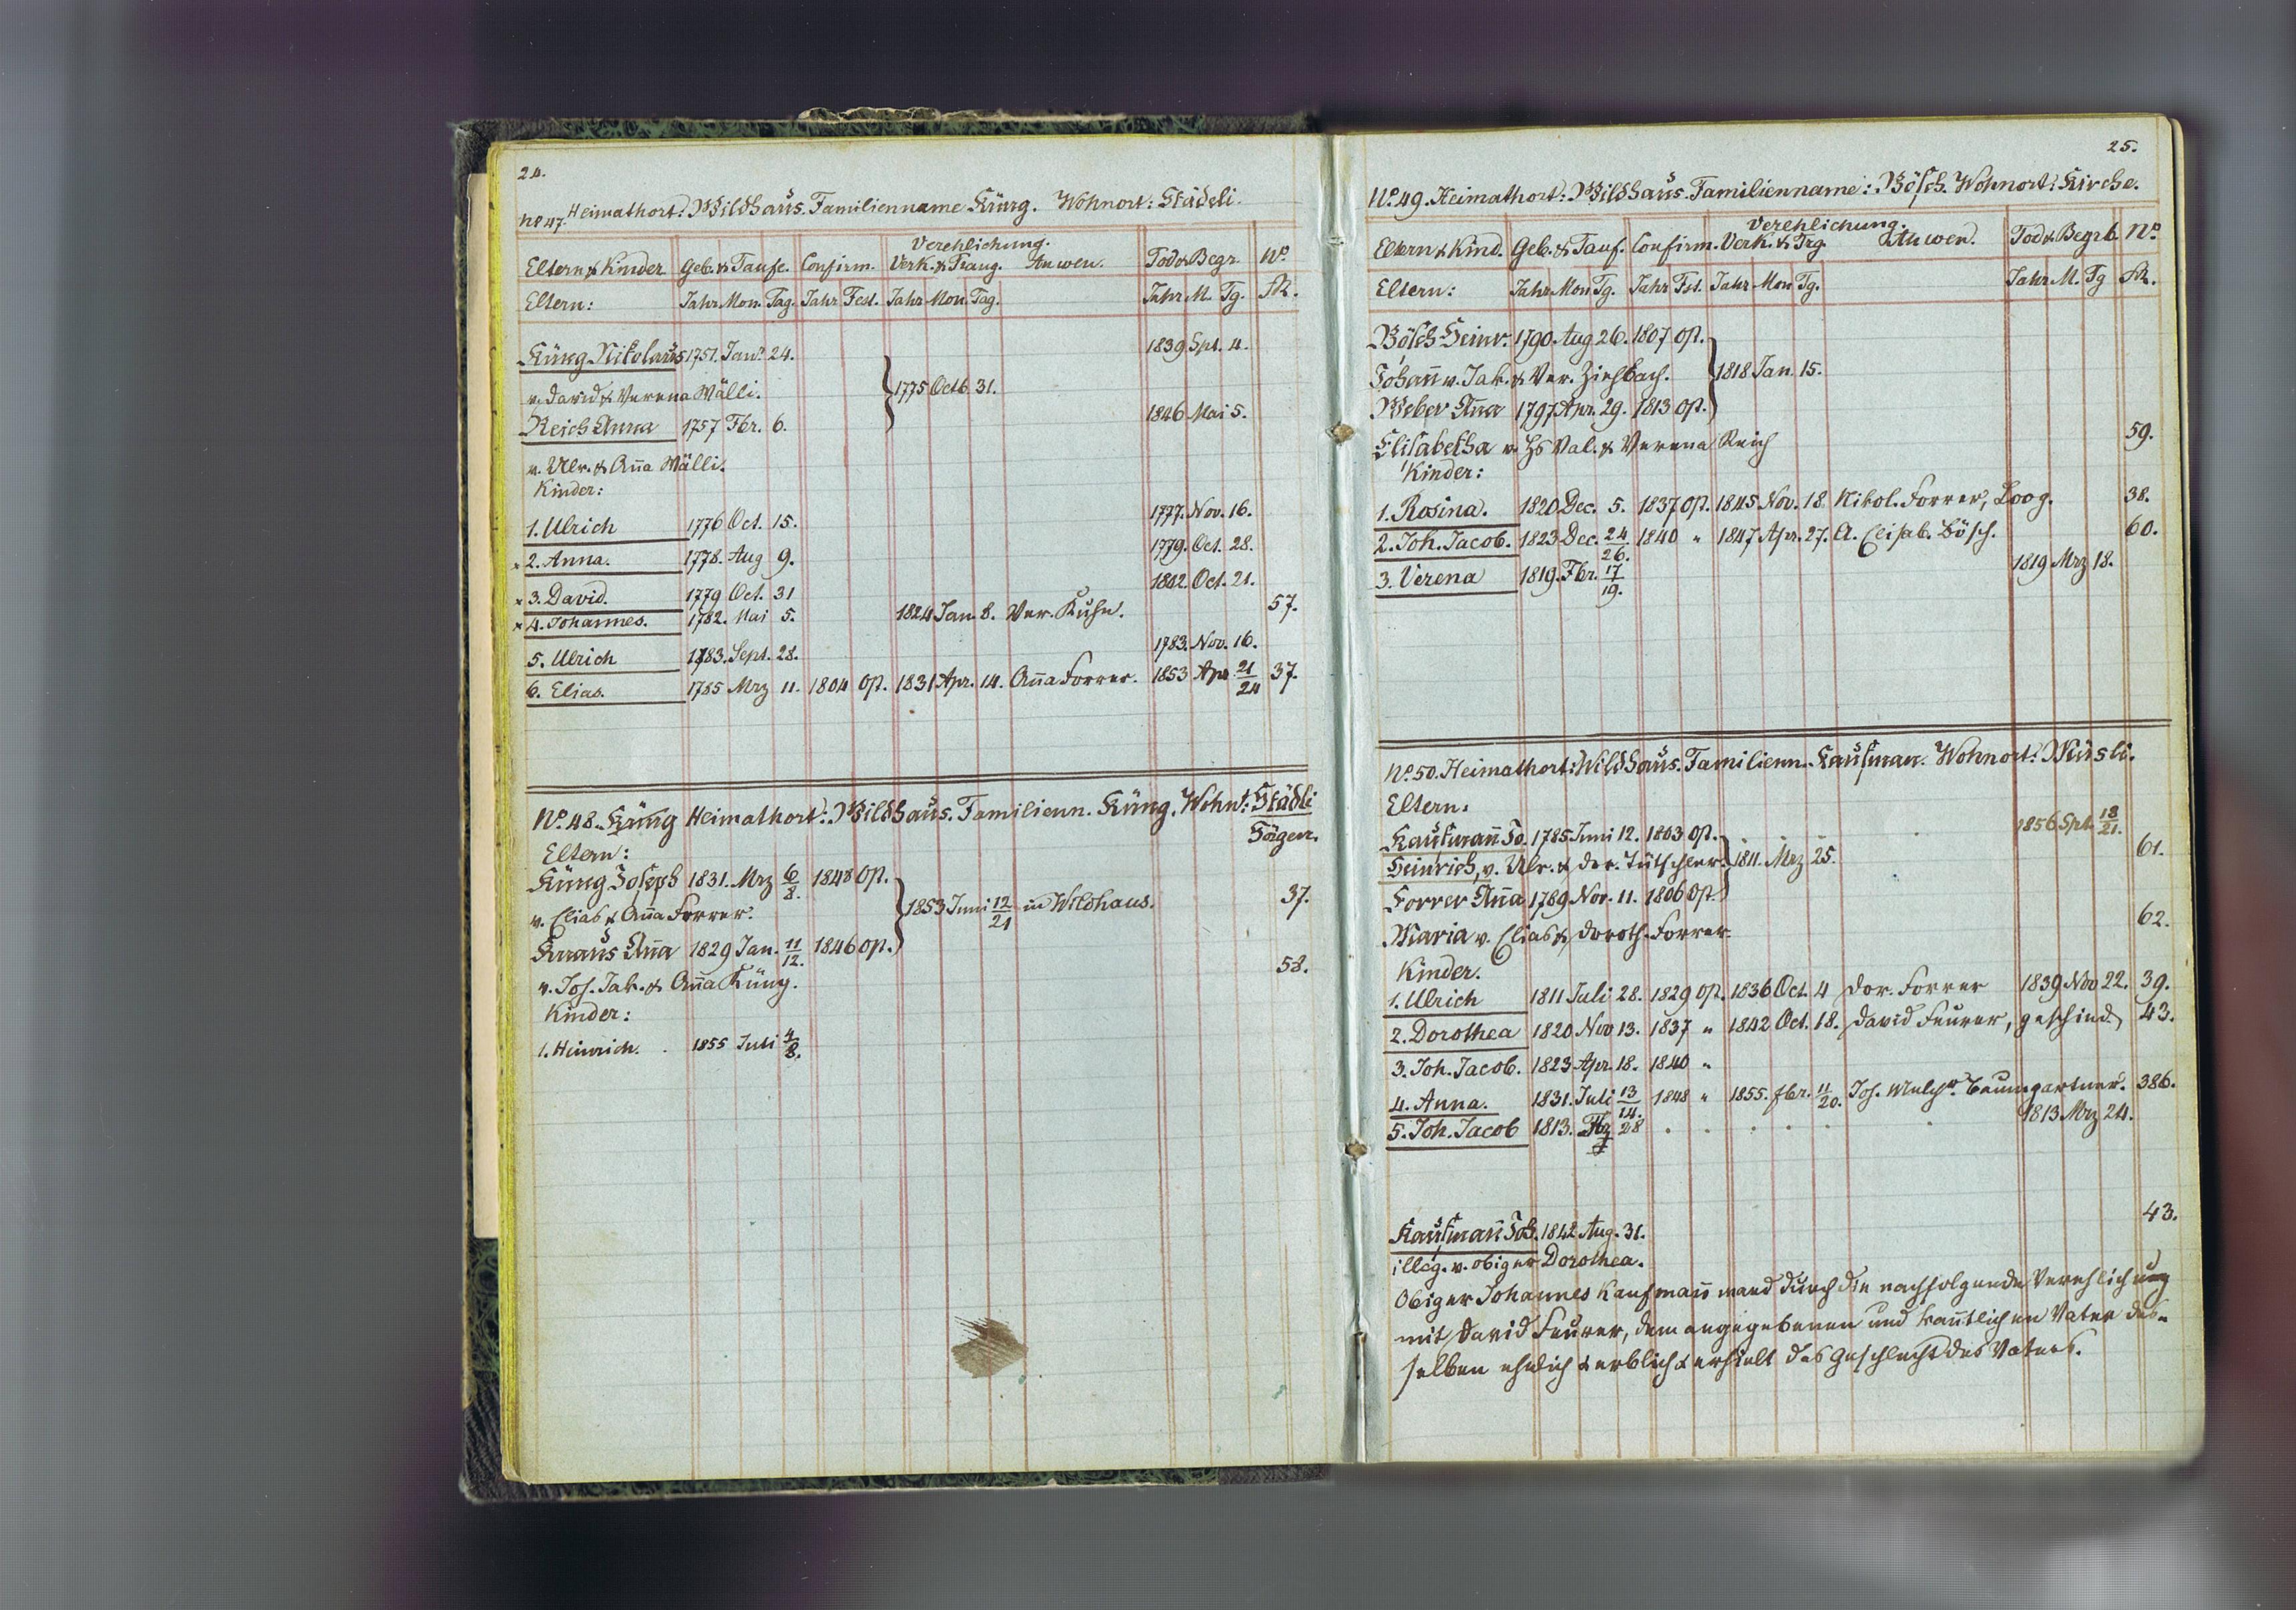 24.
No 47. Heimathort: Wildhaus. Familienname Küng. Wohnort: Städeli.
Verehlichung.
Eltern & Kinder Geb. & Taufe. Confirm. Verk. & Traug. Anwen. Tod & Begr. No.
Eltern: Jahr Mon. Tag. Jahr Fest. Jahr Mon. Tag. Jahr M. Tg. FR.
Küng Nikolaus 1751. Jan. 24. 1839 Spt. 4.
v. David & Verena Wälli. 1775 Octb. 31.
Reich Anna 1757 Fbr. 6. 1846 Mai 5.
v. Ulr. & Aña Wälli.
Kinder:
1. Ulrich 1776 Oct. 15. 1777. Nov. 16.
× 2. Anna. 1778. Aug 9. 1779. Oct. 28.
× 3. David. 1779 Oct. 31 1802. Oct. 21.
× 4. Johannes. 1782. Mai 5. 1824 Jan. 8. Ver. Kuhn. 57.
5. Ulrich 1783. Sept. 28. 1783. Nov. 16.
6. Elias. 1785 Mrz 11. 1804 Op. 1831 Apr. 14. Aña Forrer. 1853 Apr. 21/24 37.
No. 48. Küng Heimathort: Wildhaus. Familienn. Küng. Wohnt: Städli
Eltern:
Küng Joseph 1831. Mrz 6/8. 1848 Op.
v. Elias & Aña Forrer. 1853 Juni 12/21 in Wildhaus. 37.
Knaus Aña 1829 Jan. 11/12. 1846 Op.
v. Jos. Jak. & Aña Küng. 58.
Kinder:
1. Heinrich. 1855 Juli 4/8.
25.
No. 49. Heimathort: Wildhaus. Familienname: Bösch. Wohnort: Kirche.
Verehlichung.
Eltern & Kind. Geb. & Tauf. Confirm. Verk. & Trg. Anwen. Tod & Begrb. No.
Eltern: Jahr Mon Tg. Jahr Fst. Jahr Mon Tg. Jahr M. Tg FR.
Bösch Heinr. 1790. Aug 26. 1807 Op.
Johañ v. Jak. & Ver. 1818 Jan. 15.
Weber Aña 1797 Apr. 29. 1813 Op.
Elisabetha v. Hs Val. & Verena Reich 59.
Kinder:
1. Rosina. 1820 Dec. 5. 1837 Op. 1845 Nov. 18. Nikol. Forrer, Loog. 38.
2. Joh. Jacob. 1823 Dec. 24/26. 1840 " 1847 Apr. 27. A. Elisab. Bösch. 60.
3. Verena 1819. Fbr. 17/19. 1819 Mrz 18.
No. 50. Heimathort: Wildhaus. Familienn. Kaufman. Wohnort: Müsli.
Eltern.
Kaufmañ Jo. 1785 Juni 12. 1803 Op. 1856 Spt. 18/21.
Heinrich, v. Ulr. & Dor. Tütschler. 1811. Mrz 25. 61.
Forrer Aña 1789 Nov. 11. 1806 Op.
Maria v. Elias & Doroth. Forrer. 62.
Kinder.
1. Ulrich 1811 Juli 28. 1829 Op. 1836 Oct. 4 Dor. Forrer 1839 Nov 22. 39.
2. Dorothea 1820 Nov 13. 1837 " 1842 Oct. 18. David Feurer, geschied. 43.
3. Joh. Jacob. 1823 Apr. 18. 1840 "
4. Anna. 1831. Juli 13/14. 1848 " 1855. Fbr. 11/20. Joh. Melchr. Baumgartner. 386.
5. Joh. Jacob 1813. 28 1813 Mrz 24.
43.
Kaufmañ Joh. 1842 Aug. 31.
illeg. v. obiger Dorothea.
Obiger Johannes Kaufmañ ward durch die nachfolgende Verehlichung
mit David Feurer, dem angegebenen und kantlichen Vater des-
selben ehelich & erblich & erhielt das Geschlecht des Vaters.